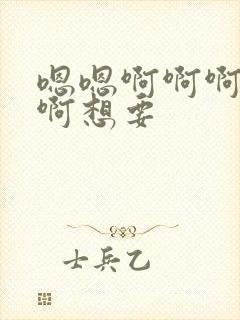 嗯嗯啊啊啊
啊想要
士兵乙